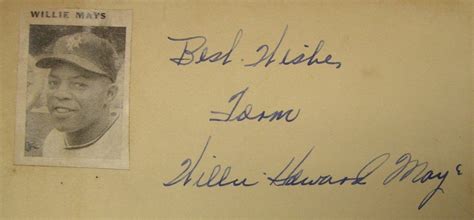 WILLIE MAYS
Best Wishes
Form
Willie Howard Mays